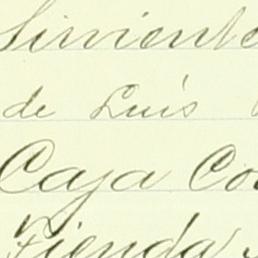 Sirvient
de Luis
Caja Co
Tienda